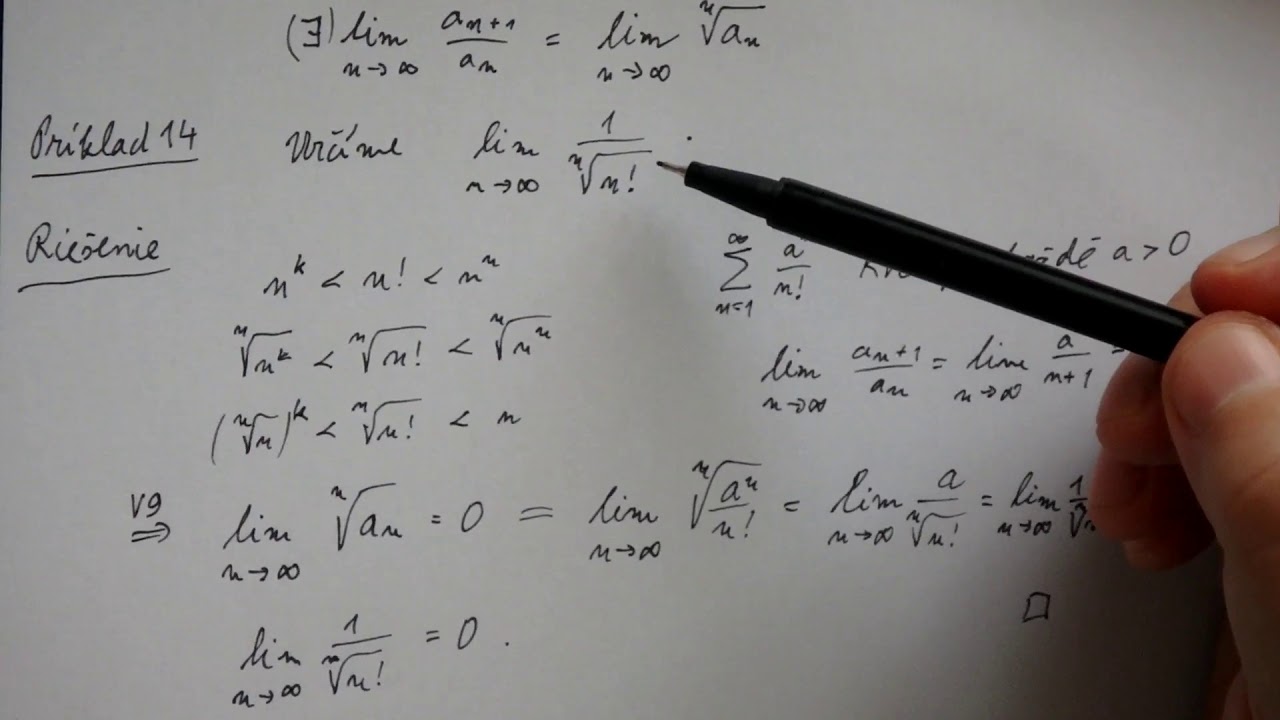 (∃) lim n→∞ aₙ₊₁/aₙ = lim n→∞ ⁿ√aₙ
Príklad 14 Určíme lim n→∞ 1/ⁿ√n! .
Riešenie
nᵏ < n! < nⁿ
ⁿ√nᵏ < ⁿ√n! < ⁿ√nⁿ
(ⁿ√n)ᵏ < ⁿ√n! < n
∞ ∑ n=1 a/n! a > 0
lim n→∞ aₙ₊₁/aₙ = lim n→∞ a/n+1 =
V9 ⇒ lim n→∞ ⁿ√aₙ = 0 = lim n→∞ ⁿ√(aⁿ/n!) = lim n→∞ a/ⁿ√n! = lim n→∞ 1/ⁿ√
□
lim n→∞ 1/ⁿ√n! = 0 .